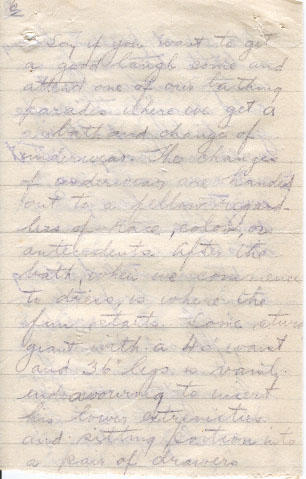 6
Say if you want to get
a good laugh come and
attend one of our bathing
parades where we get a
a bath and change of
underwear. The changes
of underwear are handed
out to a fellow regard-
less of race, color, or
antecedents. After the
bath, when we commence
to dress, is where the
fun starts. Some
giant with a 40 waist
and 36 legs is vainly
endavouring to insert
his lower extremities
and sitting portion into
a pair of drawers